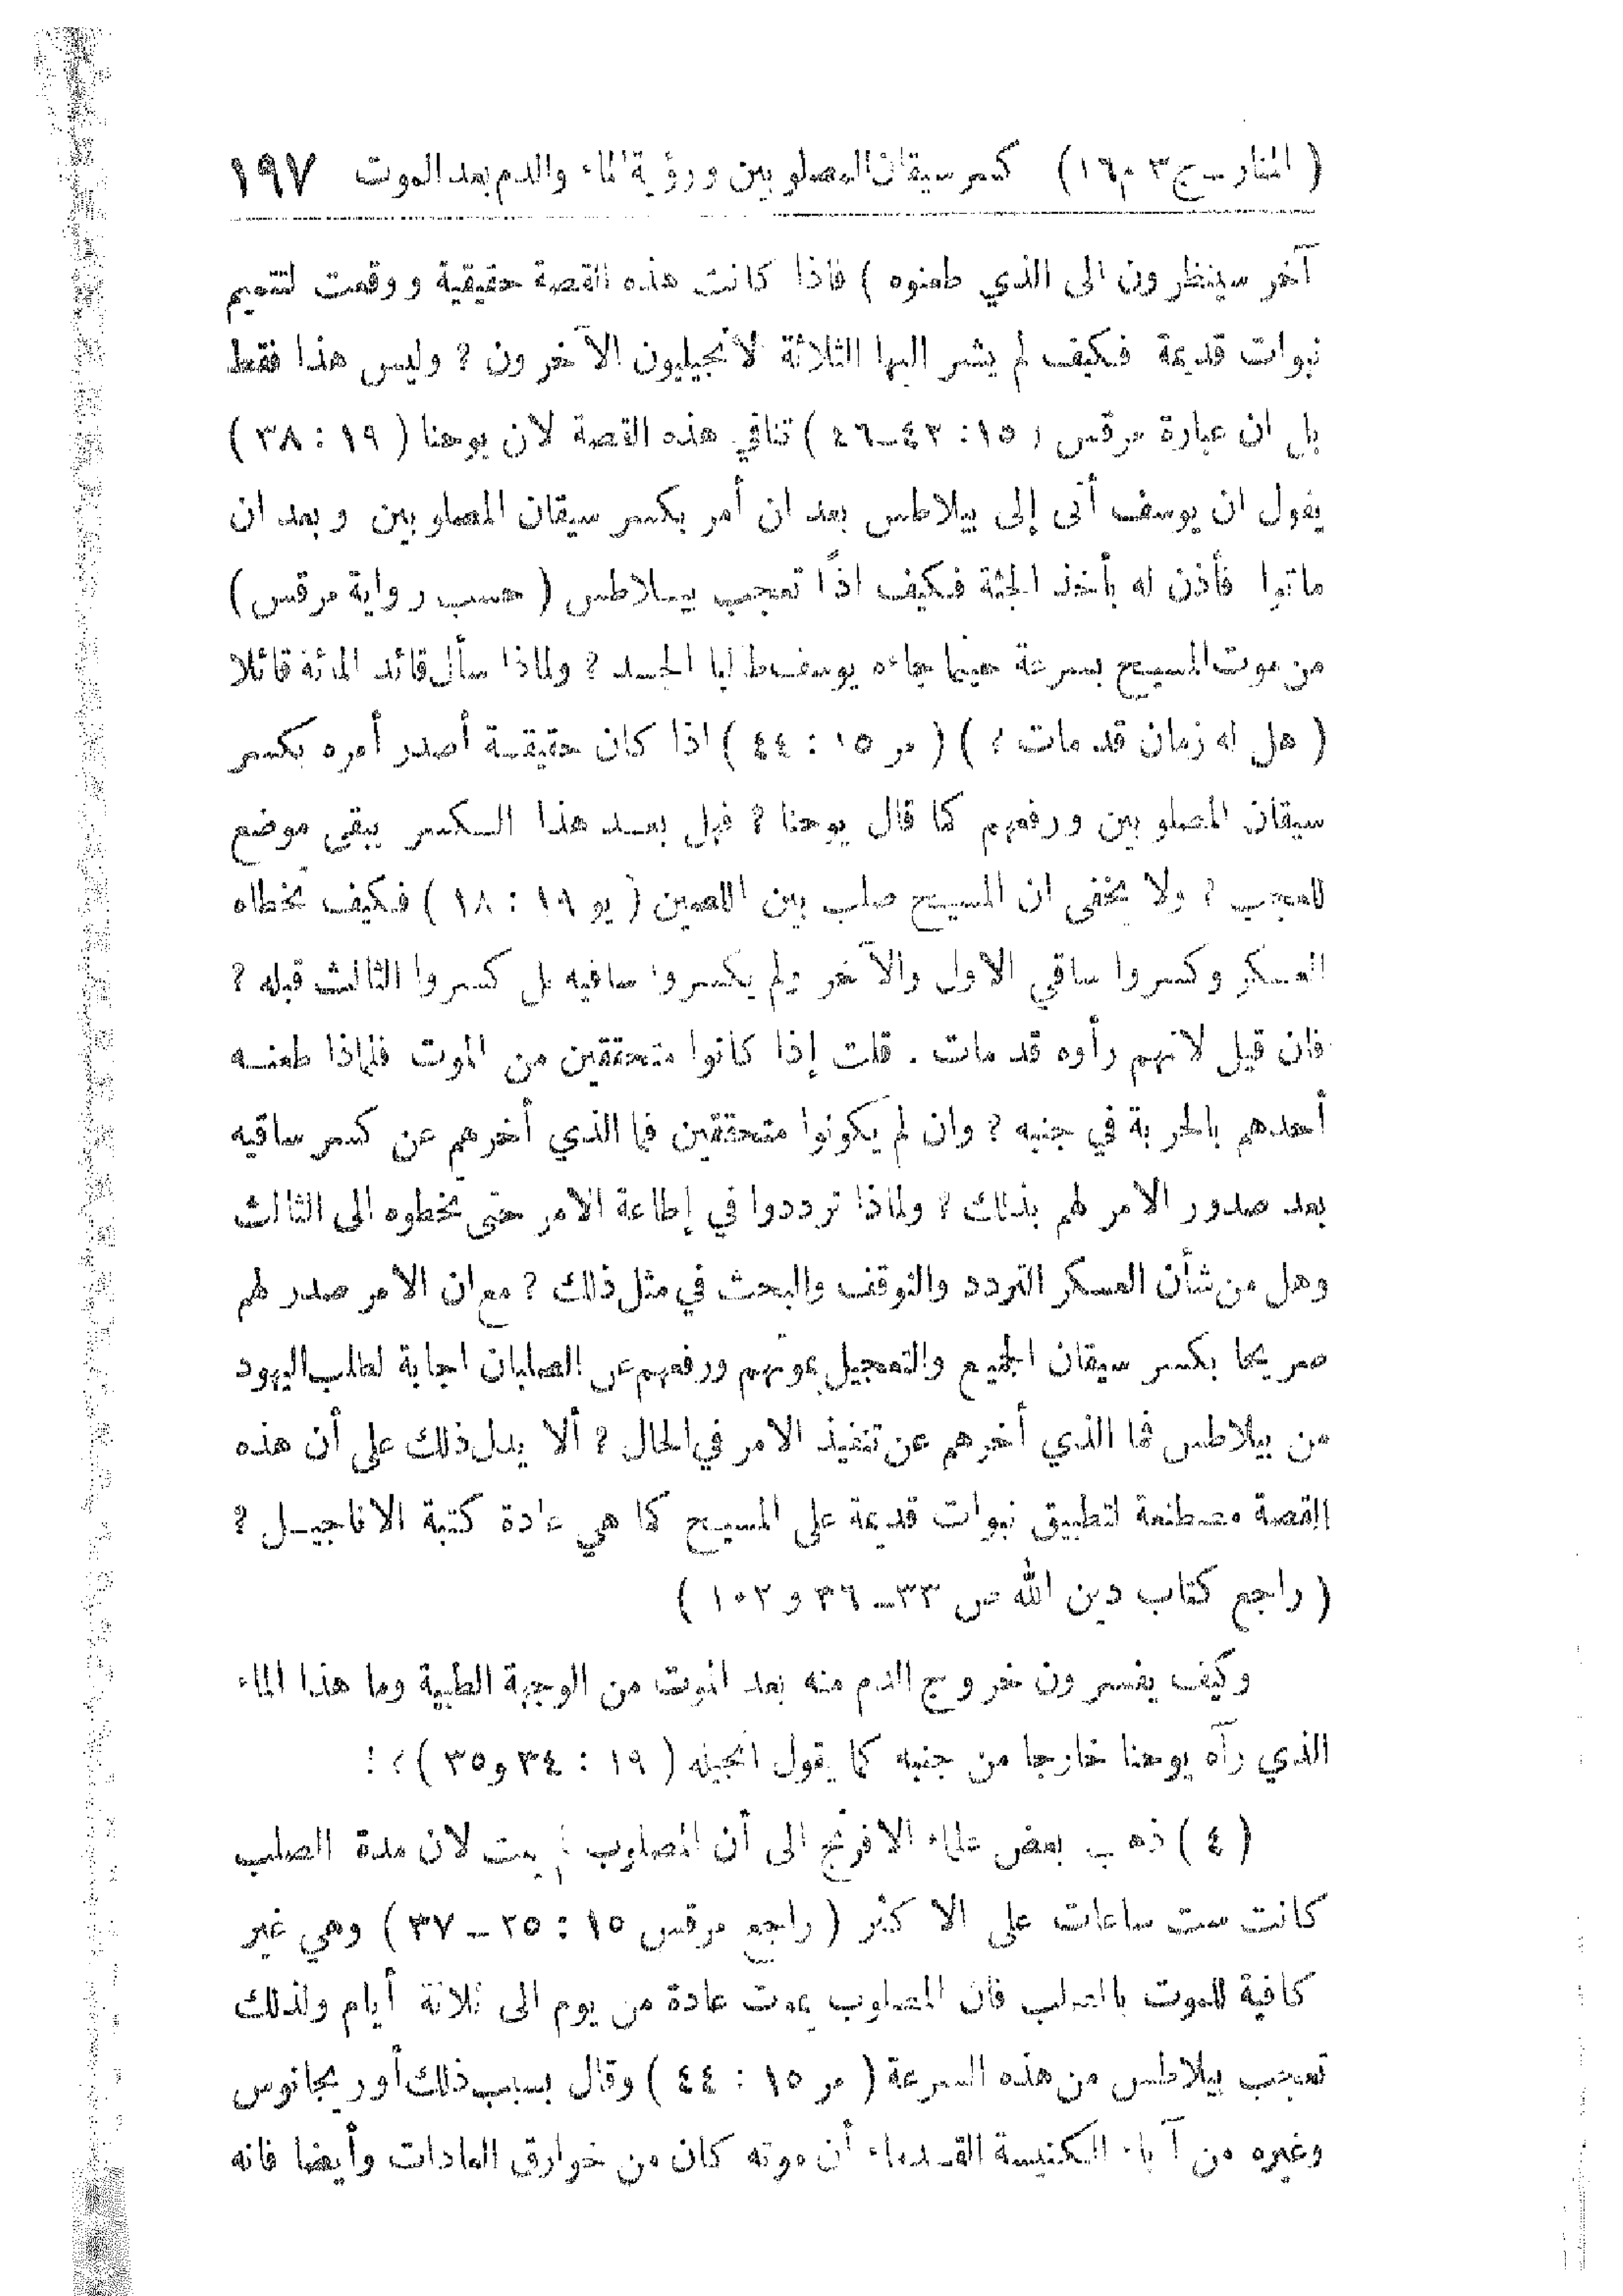 ( المنار ـ ج ٣ م ١٦ ) كسر سيقان المصلوبين ورؤية الماء والدم بعد الموت ١٩٧
آخر سينظرون الى الذي طعنوه ) فاذا كانت هذه القصة حقيقية ووقعت لتتميم
نبوات قديمة فكيف لم يشر اليها الثلاثة الانجيليون الآخرون ؟ وليس هذا فقط
بل ان عبارة مرقس ( ١٥ : ٤٢ــ٤٦ ) تنافي هذه القصة لان يوحنا ( ١٩ : ٣٨ )
يقول ان يوسف أتى إلى بيلاطس بعد ان أمر بكسر سيقان المصلوبين وبعد ان
ماتوا فأذن له بأخذ الجثة فكيف اذًا تعجب بيلاطس ( حسب رواية مرقس )
من موت المسيح بسرعة حينما جاءه يوسف طالبا الجسد ؟ ولماذا سأل قائد المائة قائلا
( هل له زمان قد مات ؟ ) ( مر ١٥ : ٤٤ ) اذا كان حقيقة أصدر أمره بكسر
سيقان المصلوبين ورفعهم كما قال يوحنا ؟ فهل بعد هذا الكسر يبقى موضع
للعجب ؟ ولا يخفى ان المسيح صلب بين اللصين ( يو ١٩ : ١٨ ) فكيف تخطاه
العسكر وكسروا ساقي الاول والآخر ولم يكسروا ساقيه بل كسروا الثالث قبله ؟
فان قيل لانهم رأوه قد مات . قلت إذا كانوا متحققين من الموت فلماذا طعنه
أحدهم بالحربة في جنبه ؟ وان لم يكونوا متحققين فما الذي أخرهم عن كسر ساقيه
بعد صدور الامر لهم بذلك ؟ ولماذا ترددوا في إطاعة الامر حتى تخطوه الى الثالث
وهل من شأن العسكر التردد والتوقف والبحث في مثل ذلك ؟ مع ان الامر صدر لهم
صريحا بكسر سيقان الجميع والتعجيل بموتهم ورفعهم عن الصلبان اجابة لطلب اليهود
من بيلاطس فما الذي أخرهم عن تنفيذ الامر في الحال ؟ ألا يدل ذلك على أن هذه
القصة مصطنعة لتطبيق نبوات قديمة على المسيح كما هي عادة كتبة الاناجيل ؟
( راجع كتاب دين الله ص ٣٣ــ٣٦ و١٠٢ )
وكيف يفسرون خروج الدم منه بعد الموت من الوجهة الطبية وما هذا الماء
الذي رآه يوحنا خارجا من جنبه كما يقول انجيله ( ١٩ : ٣٤ و٣٥ ) ؟ !
( ٤ ) ذهب بعض علماء الافرنج الى أن المصلوب لم يمت لان مدة الصلب
كانت ست ساعات على الاكثر ( راجع مرقس ١٥ : ٢٥ ــ ٣٧ ) وهي غير
كافية للموت بالصلب فان المصلوب يموت عادة من يوم الى ثلاثة أيام ولذلك
تعجب بيلاطس من هذه السرعة ( مر ١٥ : ٤٤ ) وقال بسبب ذلك أوريجانوس
وغيره من آباء الكنيسة القدماء أن موته كان من خوارق العادات وأيضا فانه